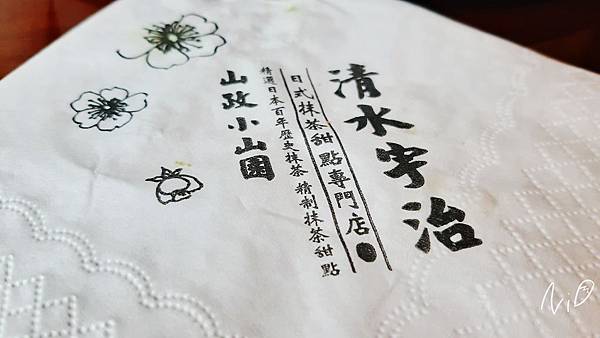 清水宇治
日式抹茶甜點專門店
精選日本百年歷史抹茶 精制抹茶甜點
山政小山園